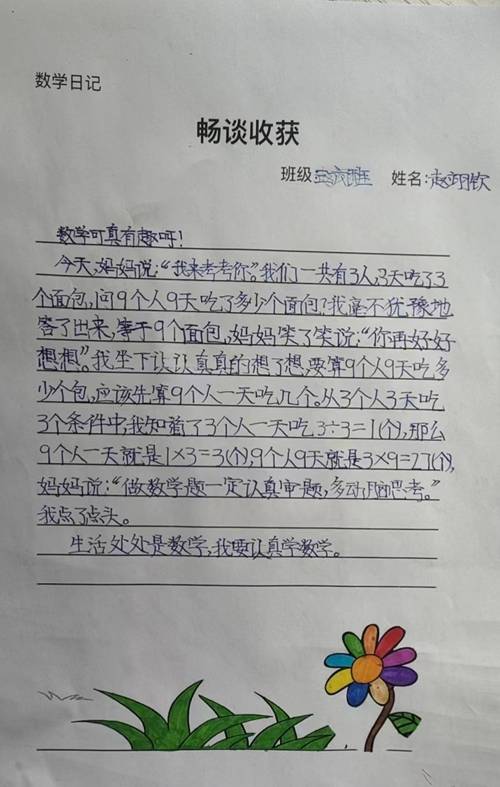 数学日记
畅谈收获
班级:三六班 姓名:赵翊钦
数学可真有趣呀!
今天,妈妈说:“我来考考你。”我们一共有3人,3天吃了3
个面包,问9个人9天吃了多少个面包?我毫不犹豫地
答了出来,等于9个面包,妈妈笑了笑说:“你再好好
想想”。我坐下认认真真的想了想,要算9个人9天吃多
少个包,应该先算9个人一天吃几个。从3个人3天吃
3个条件中,我知道了3个人一天吃3÷3=1(个),那么
9个人一天就是1×3=3(个),9个人9天就是3×9=27(个),
妈妈说:“做数学题一定认真审题,多动脑思考。”
我点了点头。
生活处处是数学,我要认真学数学。